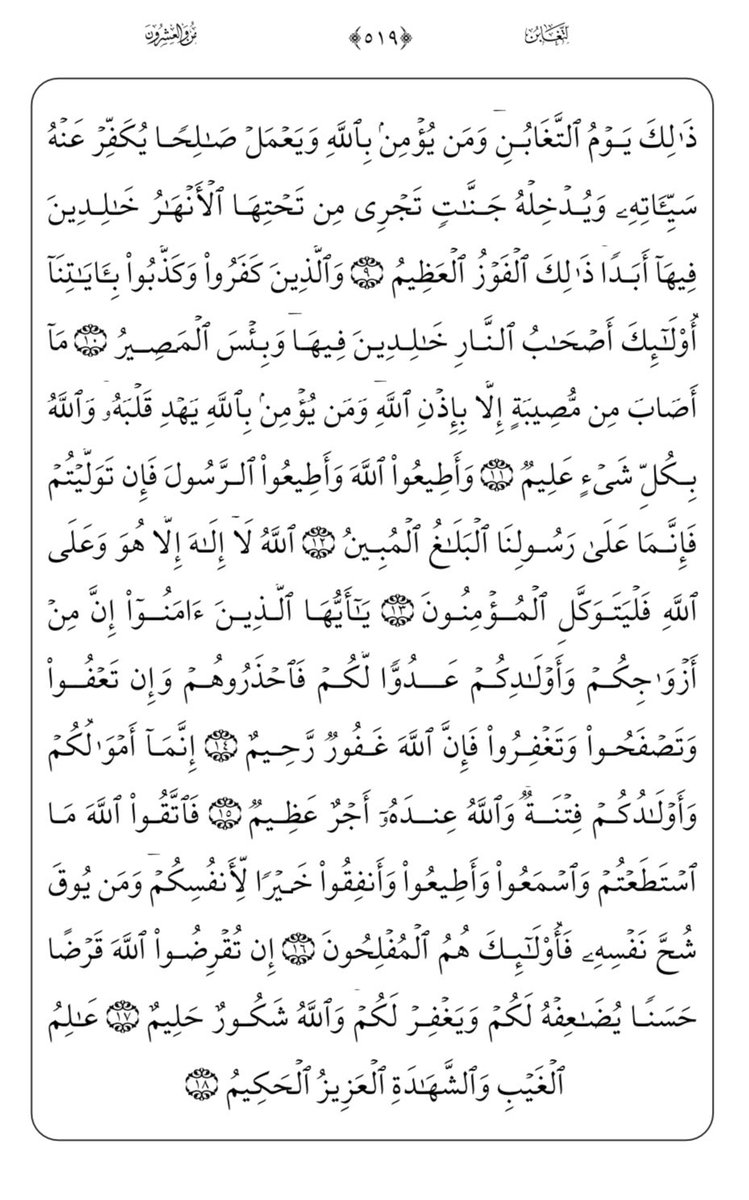 التغابن ﴿٥١٩﴾ والعشرون
ذَٰلِكَ يَوْمُ ٱلتَّغَابُنِ وَمَن يُؤْمِنۢ بِٱللَّهِ وَيَعْمَلْ صَـٰلِحًا يُكَفِّرْ عَنْهُ
سَيِّـَٔاتِهِۦ وَيُدْخِلْهُ جَنَّـٰتٍ تَجْرِى مِن تَحْتِهَا ٱلْأَنْهَـٰرُ خَـٰلِدِينَ
فِيهَآ أَبَدًا ذَٰلِكَ ٱلْفَوْزُ ٱلْعَظِيمُ ٩ وَٱلَّذِينَ كَفَرُوا۟ وَكَذَّبُوا۟ بِـَٔايَـٰتِنَآ
أُو۟لَـٰٓئِكَ أَصْحَـٰبُ ٱلنَّارِ خَـٰلِدِينَ فِيهَا وَبِئْسَ ٱلْمَصِيرُ ١٠ مَآ
أَصَابَ مِن مُّصِيبَةٍ إِلَّا بِإِذْنِ ٱللَّهِ وَمَن يُؤْمِنۢ بِٱللَّهِ يَهْدِ قَلْبَهُۥ وَٱللَّهُ
بِكُلِّ شَىْءٍ عَلِيمٌ ١١ وَأَطِيعُوا۟ ٱللَّهَ وَأَطِيعُوا۟ ٱلرَّسُولَ فَإِن تَوَلَّيْتُمْ
فَإِنَّمَا عَلَىٰ رَسُولِنَا ٱلْبَلَـٰغُ ٱلْمُبِينُ ١٢ ٱللَّهُ لَآ إِلَـٰهَ إِلَّا هُوَ وَعَلَى
ٱللَّهِ فَلْيَتَوَكَّلِ ٱلْمُؤْمِنُونَ ١٣ يَـٰٓأَيُّهَا ٱلَّذِينَ ءَامَنُوٓا۟ إِنَّ مِنْ
أَزْوَٰجِكُمْ وَأَوْلَـٰدِكُمْ عَدُوًّا لَّكُمْ فَٱحْذَرُوهُمْ وَإِن تَعْفُوا۟
وَتَصْفَحُوا۟ وَتَغْفِرُوا۟ فَإِنَّ ٱللَّهَ غَفُورٌ رَّحِيمٌ ١٤ إِنَّمَآ أَمْوَٰلُكُمْ
وَأَوْلَـٰدُكُمْ فِتْنَةٌ وَٱللَّهُ عِندَهُۥٓ أَجْرٌ عَظِيمٌ ١٥ فَٱتَّقُوا۟ ٱللَّهَ مَا
ٱسْتَطَعْتُمْ وَٱسْمَعُوا۟ وَأَطِيعُوا۟ وَأَنفِقُوا۟ خَيْرًا لِّأَنفُسِكُمْ وَمَن يُوقَ
شُحَّ نَفْسِهِۦ فَأُو۟لَـٰٓئِكَ هُمُ ٱلْمُفْلِحُونَ ١٦ إِن تُقْرِضُوا۟ ٱللَّهَ قَرْضًا
حَسَنًا يُضَـٰعِفْهُ لَكُمْ وَيَغْفِرْ لَكُمْ وَٱللَّهُ شَكُورٌ حَلِيمٌ ١٧ عَـٰلِمُ
ٱلْغَيْبِ وَٱلشَّهَـٰدَةِ ٱلْعَزِيزُ ٱلْحَكِيمُ ١٨